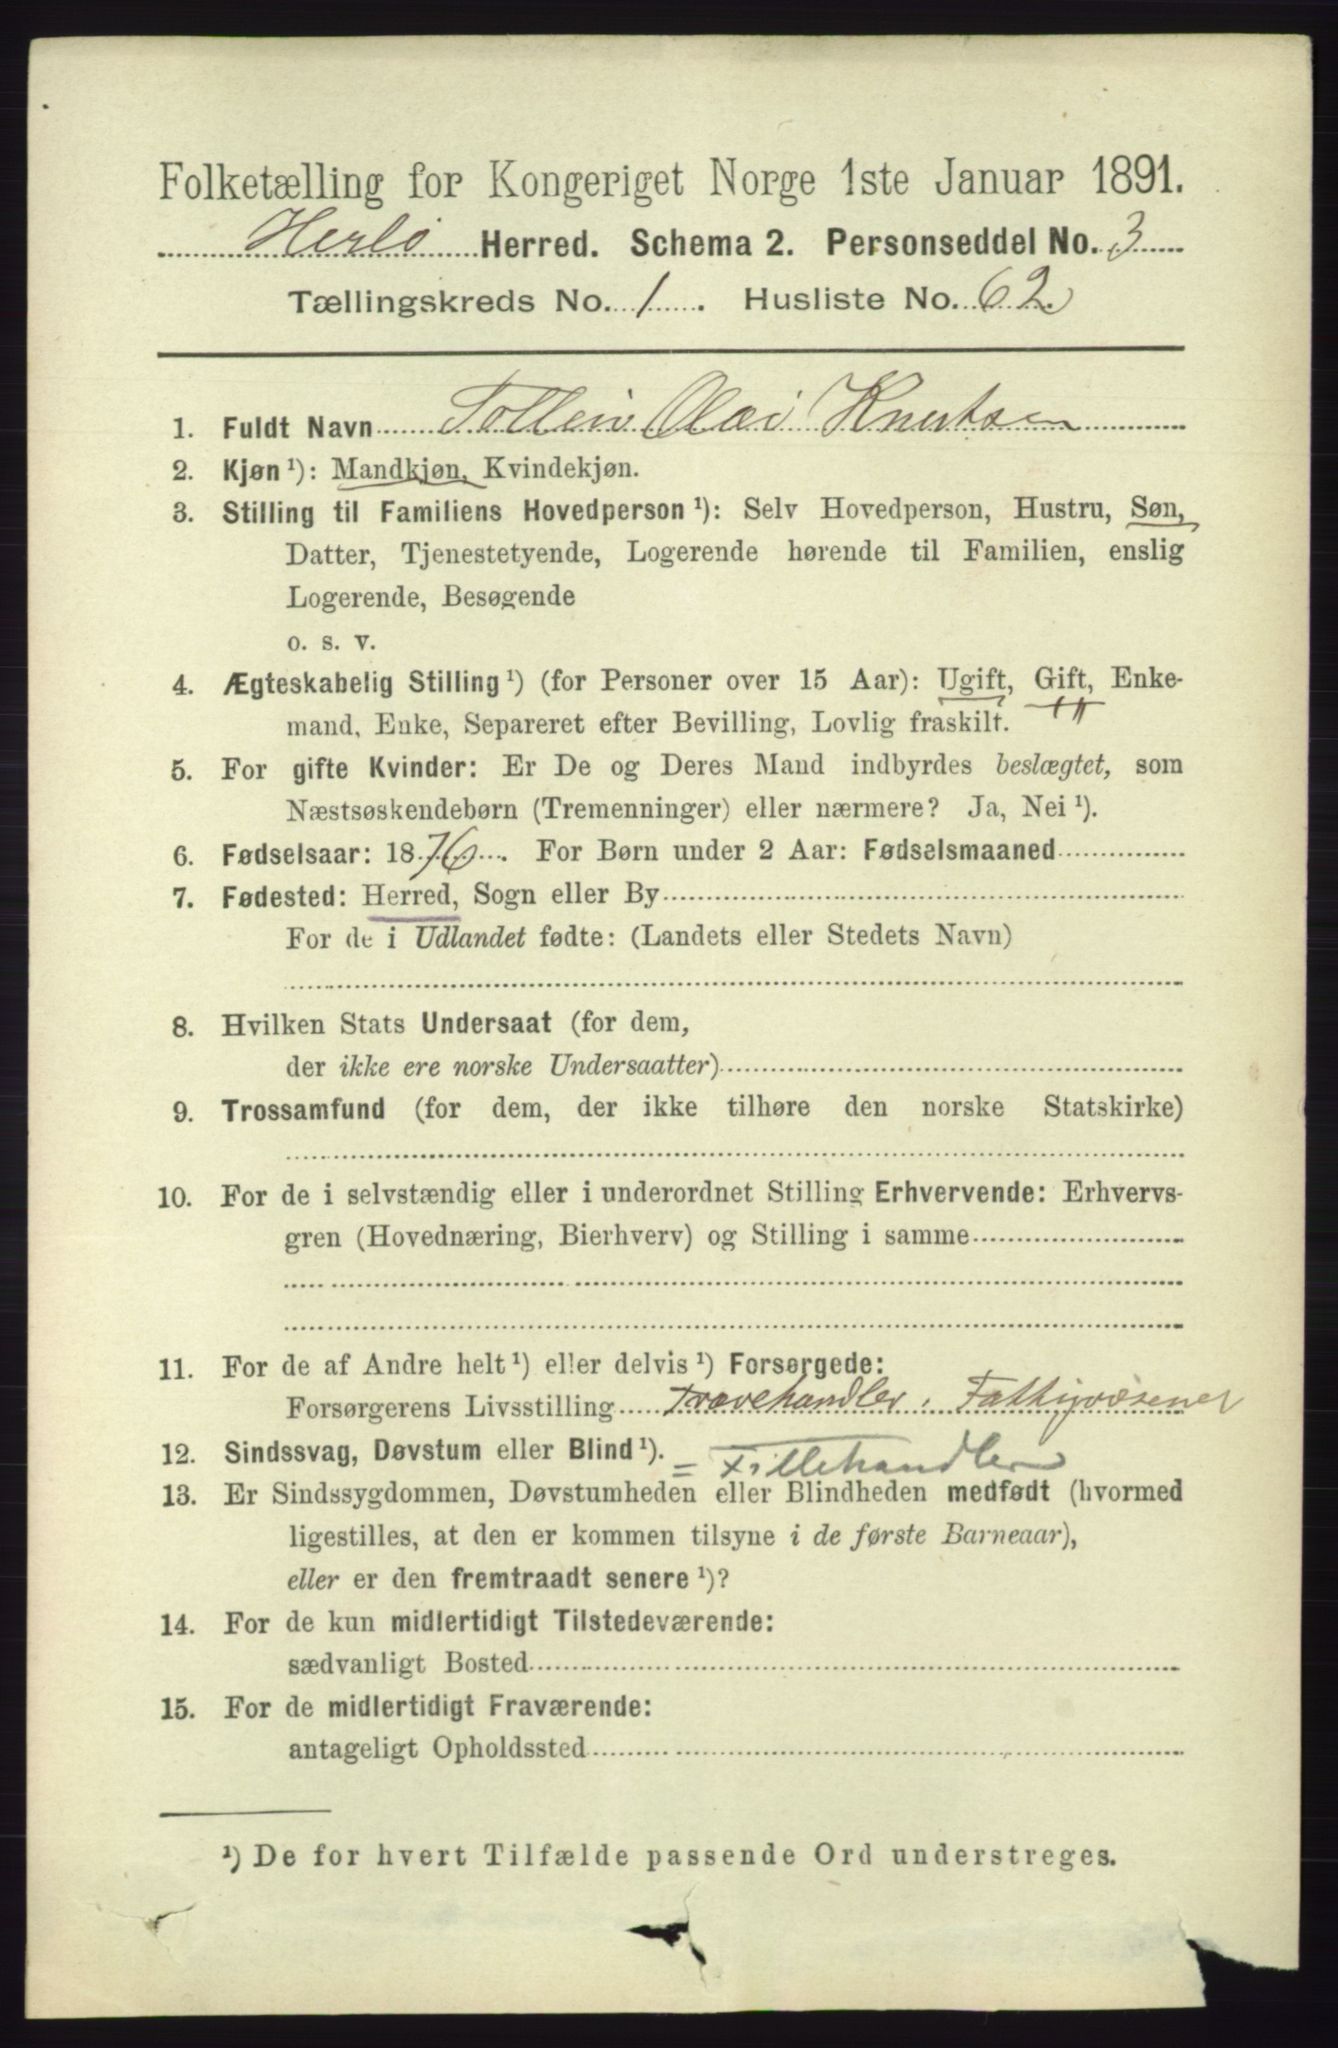 Folketælling for Kongeriget Norge 1ste Januar 1891.
Herlö Herred. Schema 2. Personseddel No. 3
Tællingskreds No. 1. Husliste No. 62
1. Fuldt Navn Tolleiv Olai Knutsen
2. Kjøn ¹): Mandkjøn, Kvindekjøn.
3. Stilling til Familiens Hovedperson ¹): Selv Hovedperson, Hustru, Søn,
Datter, Tjenestetyende, Logerende hørende til Familien, enslig
Logerende, Besøgende
o. s. v.
4. Ægteskabelig Stilling ¹) (for Personer over 15 Aar): Ugift, Gift, Enke-
mand, Enke, Separeret efter Bevilling, Lovlig fraskilt.
5. For gifte Kvinder: Er De og Deres Mand indbyrdes beslægtet, som
Næstsøskendebørn (Tremenninger) eller nærmere? Ja, Nei ¹).
6. Fødselsaar: 1876. For Børn under 2 Aar: Fødselsmaaned
7. Fødested: Herred, Sogn eller By
For de i Udlandet fødte: (Landets eller Stedets Navn)
8. Hvilken Stats Undersaat (for dem,
der ikke ere norske Undersaatter)
9. Trossamfund (for dem, der ikke tilhøre den norske Statskirke)
10. For de i selvstændig eller i underordnet Stilling Erhvervende: Erhvervs-
gren (Hovednæring, Bierhverv) og Stilling i samme
11. For de af Andre helt ¹) eller delvis ¹) Forsørgede:
Forsørgerens Livsstilling Travehandler. Fattigvæsenet
12. Sindssvag, Døvstum eller Blind ¹). = Fillehandler
13. Er Sindssygdommen, Døvstumheden eller Blindheden medfødt (hvormed
ligestilles, at den er kommen tilsyne i de første Barneaar),
eller er den fremtraadt senere ¹)?
14. For de kun midlertidigt Tilstedeværende:
sædvanligt Bosted
15. For de midlertidigt Fraværende:
antageligt Opholdssted
¹) De for hvert Tilfælde passende Ord understreges.